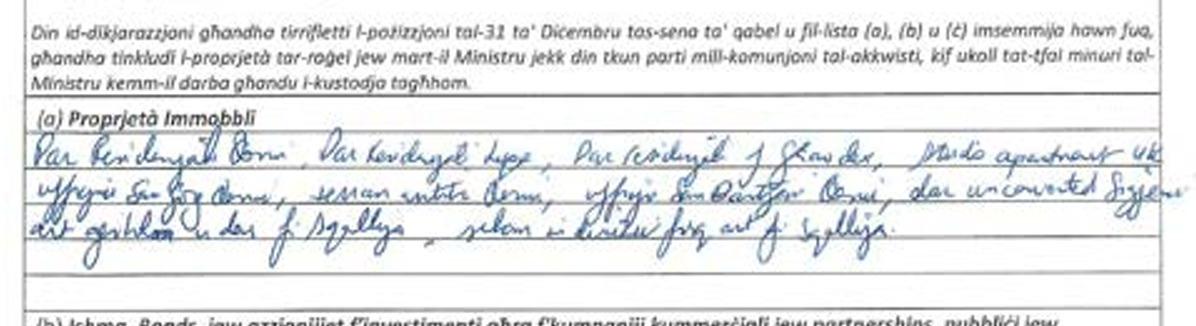 Din id-dikjarazzjoni għandha tirrifletti l-pożizzjoni tal-31 ta' Diċembru tas-sena ta' qabel u fil-lista (a), (b) u (ċ) imsemmija hawn fuq,
għandha tinkludi l-proprjetà tar-raġel jew mart-il Ministru jekk din tkun parti mill-komunjoni tal-akkwisti, kif ukoll tat-tfal minuri tal-
Ministru kemm-il darba għandu l-kustodja tagħhom.
(a) Proprjetà Immobbli
Dar Residenzjali Dar f' Għawdex, studio apartment UK
uffiċju San Ġorġ Ormi, uffiċju San Bastjan Ormi, dar unconverted Siġġiewi
art u dar fi Sqallija, sehem fuq art fi Sqallija.
(b) Ishma, Bonds, jew azzjonijiet f'investimenti oħra f'kumpaniji kummerċjali jew partnerships, pubbliċi jew